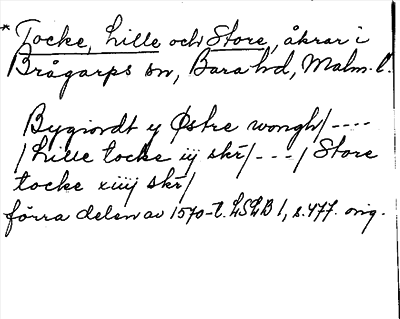 * Tocke, Lille och Store, åkrar i
Brågarps sn, Bara hd, Malm. l.
Bygiordt y Østre wongh/----
/Lille tocke iij skr/---/Store
tocke xiiij skr/
förra delen av 1570-t. LSLB 1, s. 477. orig.